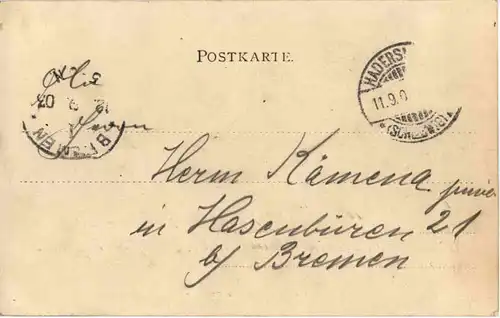 POSTKARTE.
HADERS
11.9.0
*(SCHLESWIG)*
12 9 03
BREMEN
Herrn Kämena
in Hasenbüren 21
b/ Bremen